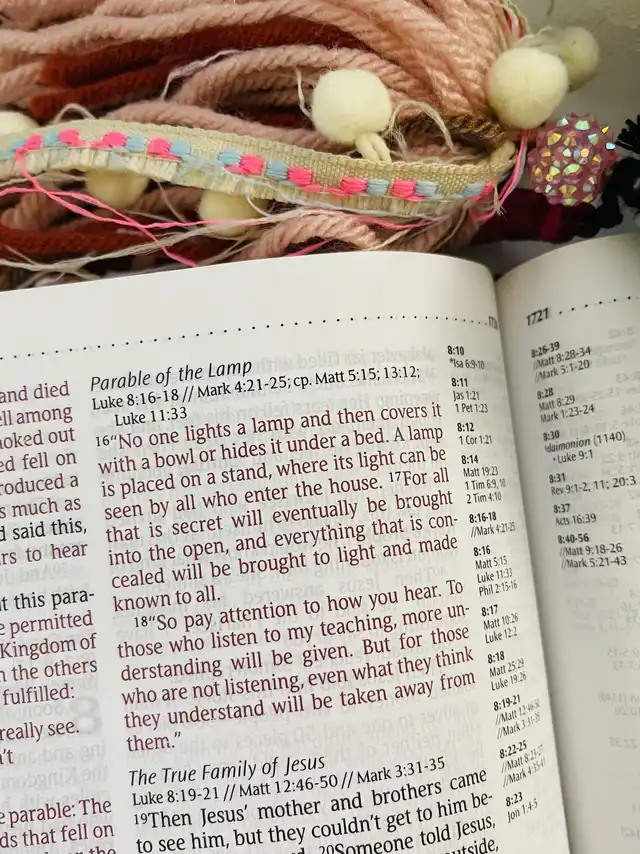 and died
ell among
hoked out
ed fell on
roduced a
s much as
d said this,
rs to hear
t this para-
e permitted
Kingdom of
n the others
fulfilled:
really see.
n't
e parable: The
ds that fell on
Parable of the Lamp
Luke 8:16-18 // Mark 4:21-25; cp. Matt 5:15; 13:12;
Luke 11:33
16“No one lights a lamp and then covers it
with a bowl or hides it under a bed. A lamp
is placed on a stand, where its light can be
seen by all who enter the house. 17For all
that is secret will eventually be brought
into the open, and everything that is con-
cealed will be brought to light and made
known to all.
18“So pay attention to how you hear. To
those who listen to my teaching, more un-
derstanding will be given. But for those
who are not listening, even what they think
they understand will be taken away from
them.”
The True Family of Jesus
Luke 8:19-21 // Matt 12:46-50 // Mark 3:31-35
19Then Jesus’ mother and brothers came
to see him, but they couldn’t get to him be-
20Someone told Jesus,
outside,
8:10
*Isa 6:9-10
8:11
Jas 1:21
1 Pet 1:23
8:12
1 Cor 1:21
8:14
Matt 19:23
1 Tim 6:9, 10
2 Tim 4:10
8:16-18
//Mark 4:21-25
8:16
Matt 5:15
Luke 11:33
Phil 2:15-16
8:17
Matt 10:26
Luke 12:2
8:18
Matt 25:29
Luke 19:26
8:19-21
//Matt 12:46-50
//Mark 3:31-35
8:22-25
//Matt 8:23-27
//Mark 4:35-41
8:23
Jon 1:4-5
1721
8:26-39
//Matt 8:28-34
//Mark 5:1-20
8:28
Matt 8:29
Mark 1:23-24
8:30
daimonion (1140)
Luke 9:1
8:31
Rev 9:1-2, 11; 20:3
8:37
Acts 16:39
8:40-56
//Matt 9:18-26
//Mark 5:21-43